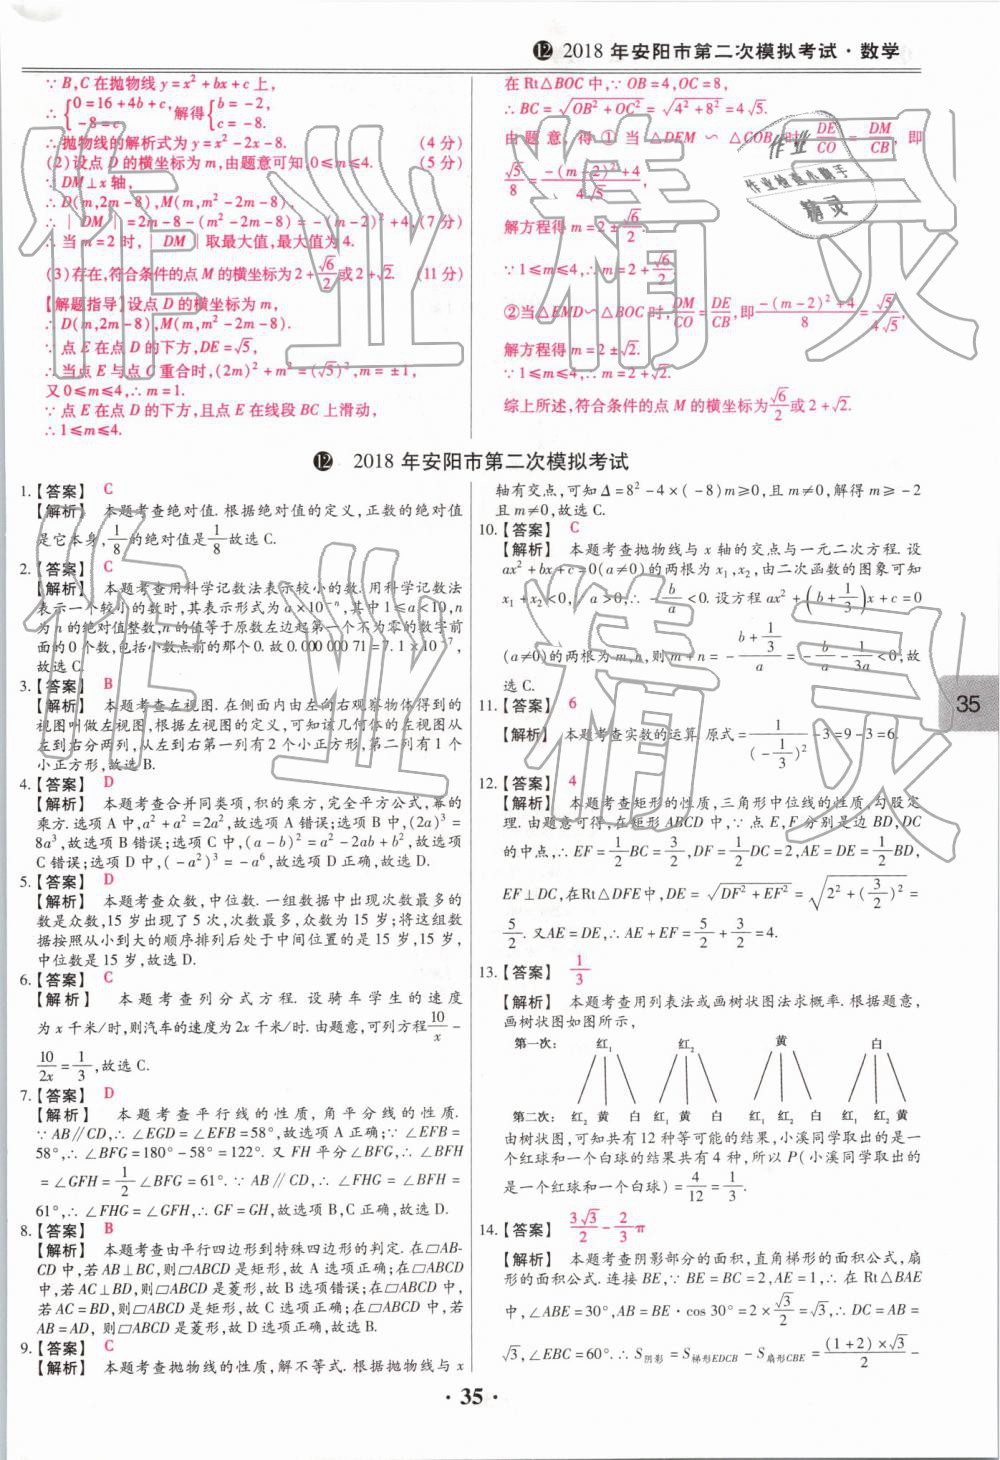 ⑫ 2018 年安阳市第二次模拟考试·数学
∵ B,C 在抛物线 y=x²+bx+c 上,
∴ {0=16+4b+c, -8=c. 解得 {b=-2, c=-8.
∴ 抛物线的解析式为 y=x²-2x-8. (4 分)
(2)设点 D 的横坐标为 m,由题意可知 0≤m≤4. (5 分)
∵ DM⊥x 轴,
∴ D(m,2m-8),M(m,m²-2m-8).
∴ |DM|=2m-8-(m²-2m-8)=-(m-2)²+4.(7 分)
∴ 当 m=2 时,|DM|取最大值,最大值为 4.
(3)存在,符合条件的点 M 的横坐标为 2+√6/2 或 2+√2. (11 分)
【解题指导】设点 D 的横坐标为 m,
∴ D(m,2m-8),M(m,m²-2m-8).
∵ 点 E 在点 D 的下方,DE=√5,
∴ 当点 E 与点 C 重合时,(2m)²+m²=(√5)²,m=±1,
又 0≤m≤4,∴ m=1.
∵ 点 E 在点 D 的下方,且点 E 在线段 BC 上滑动,
∴ 1≤m≤4.
在 Rt△BOC 中,∵ OB=4,OC=8,
∴ BC=√(OB²+OC²)=√(4²+8²)=4√5.
由题意,得①当△DEM∽△COB 时,DE/CO=DM/CB,即
√5/8=(-(m-2)²+4)/(4√5),
解方程得 m=2±√6/2.
∵ 1≤m≤4,∴ m=2+√6/2.
②当△EMD∽△BOC 时,DM/CO=DE/CB,即(-(m-2)²+4)/8=√5/(4√5),
解方程得 m=2±√2.
∵ 1≤m≤4,∴ m=2+√2.
综上所述,符合条件的点 M 的横坐标为√6/2 或 2+√2.
⑫ 2018 年安阳市第二次模拟考试
1.【答案】 C
【解析】 本题考查绝对值. 根据绝对值的定义,正数的绝对值
是它本身,1/8的绝对值是1/8.故选 C.
2.【答案】 C
【解析】 本题考查用科学记数法表示较小的数. 用科学记数法
表示一个较小的数时,其表示形式为 a×10⁻ⁿ,其中 1≤a<10,n
为 n 的绝对值整数,n 的值等于原数左边起第一个不为零的数字前
面的 0 个数,包括小数点前的那个 0. 故 0.000 000 71=7.1×10⁻⁷,
故选 C.
3.【答案】 B
【解析】 本题考查左视图. 在侧面内由左向右观察物体得到的
视图叫做左视图,根据左视图的定义,可知该几何体的左视图从
左到右分两列,从左到右第一列有 2 个小正方形,第二列有 1 个
小正方形,故选 B.
4.【答案】 D
【解析】 本题考查合并同类项,积的乘方,完全平方公式,幂的
乘方. 选项 A 中,a²+a²=2a²,故选项 A 错误;选项 B 中,(2a)³=
8a³,故选项 B 错误;选项 C 中,(a-b)²=a²-2ab+b²,故选项
C 错误;选项 D 中,(-a²)³=-a⁶,故选项 D 正确,故选 D.
5.【答案】 D
【解析】 本题考查众数,中位数. 一组数据中出现次数最多的
数是众数,15 岁出现了 5 次,次数最多,众数为 15 岁;将这组数
据按照从小到大的顺序排列后处于中间位置的是 15 岁,15 岁,
中位数是 15 岁,故选 D.
6.【答案】 C
【解析】 本题考查列分式方程. 设骑车学生的速度
为 x 千米/时,则汽车的速度为 2x 千米/时. 由题意,可列方程10/x-
10/2x=1/3,故选 C.
7.【答案】 D
【解析】 本题考查平行线的性质,角平分线的性质.
∵ AB∥CD,∴ ∠EGD=∠EFB=58°,故选项 A 正确;∵ ∠EFB=
58°,∴ ∠BFG=180°-58°=122°. 又 FH 平分∠BFG,∴ ∠BFH
=∠GFH=1/2∠BFG=61°. ∵ AB∥CD,∴ ∠FHG=∠BFH=
61°,∴ ∠FHG=∠GFH,∴ GF=GH,故选项 B,C 正确,故选 D.
8.【答案】 B
【解析】 本题考查由平行四边形到特殊四边形的判定. 在▱AB-
CD 中,若 AB⊥BC,则▱ABCD 是矩形,故 A 选项正确;在▱ABCD
中,若 AC⊥BD,则▱ABCD 是菱形,故 B 选项错误;在▱ABCD 中,
若 AC=BD,则▱ABCD 是矩形,故 C 选项正确;在▱ABCD 中,若
AB=AD, 则▱ABCD 是菱形,故 D 选项正确,故选 B.
9.【答案】 C
【解析】 本题考查抛物线的性质,解不等式. 根据抛物线与 x
轴有交点,可知 Δ=8²-4×(-8)m≥0,且 m≠0,解得 m≥-2
且 m≠0,故选 C.
10.【答案】 C
【解析】 本题考查抛物线与 x 轴的交点与一元二次方程. 设
ax²+bx+c=0(a≠0)的两根为 x₁,x₂,由二次函数的图象可知
x₁+x₂<0, a>0,∴ -b/a<0. 设方程 ax²+(b+1/3)x+c=0
(a≠0)的两根为 m,n,则 m+n=-(b+1/3)/a=-b/a-1/3a<0,故
选 C.
11.【答案】 6
【解析】 本题考查实数的运算. 原式=1/(-1/3)²-3=9-3=6.
12.【答案】 4
【解析】 本题考查矩形的性质,三角形中位线的性质,勾股定
理. 由题意可得,在矩形 ABCD 中,∵ 点 E,F 分别是边 BD,DC
的中点,∴ EF=1/2BC=3/2,DF=1/2DC=2,AE=DE=1/2BD,
EF⊥DC,在 Rt△DFE 中,DE=√(DF²+EF²)=√(2²+(3/2)²)=
5/2. 又 AE=DE,∴ AE+EF=5/2+3/2=4.
13.【答案】 1/3
【解析】 本题考查用列表法或画树状图法求概率. 根据题意,
画树状图如图所示,
第一次: 红₁ 红₂ 黄 白
第二次: 红₂ 黄 白 红₁ 黄 白 红₁ 红₂ 白 红₁ 红₂ 黄
由树状图,可知共有 12 种等可能的结果,小溪同学取出的是一
个红球和一个白球的结果共有 4 种,所以 P(小溪同学取出的
是一个红球和一个白球)=4/12=1/3.
14.【答案】 3√3/2-2/3π
【解析】 本题考查阴影部分的面积,直角梯形的面积公式,扇
形的面积公式. 连接 BE,∵ BE=BC=2,AE=1,∴ 在 Rt△BAE
中,∠ABE=30°,AB=BE·cos 30°=2×√3/2=√3,∴ DC=AB=
√3,∠EBC=60°.∴ S阴影=S梯形EDCB-S扇形CBE=(1+2)×√3/2-
35
· 35 ·
作业精灵
作业精灵
作业
作业检查小助手
精灵